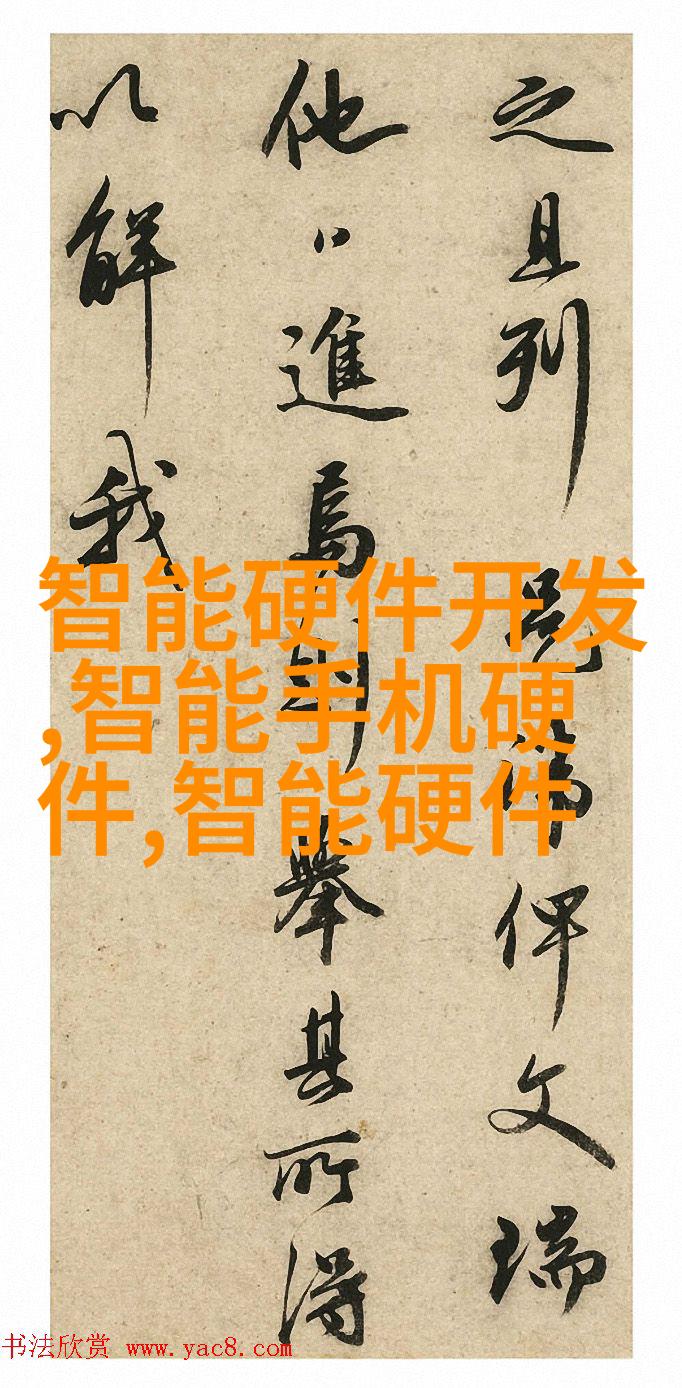 之且列俾文瑞
他進焉則舉其所得
以解我
智能硬件开发
,智能手机硬
件,智能硬件
书法欣赏 www.yac8.com